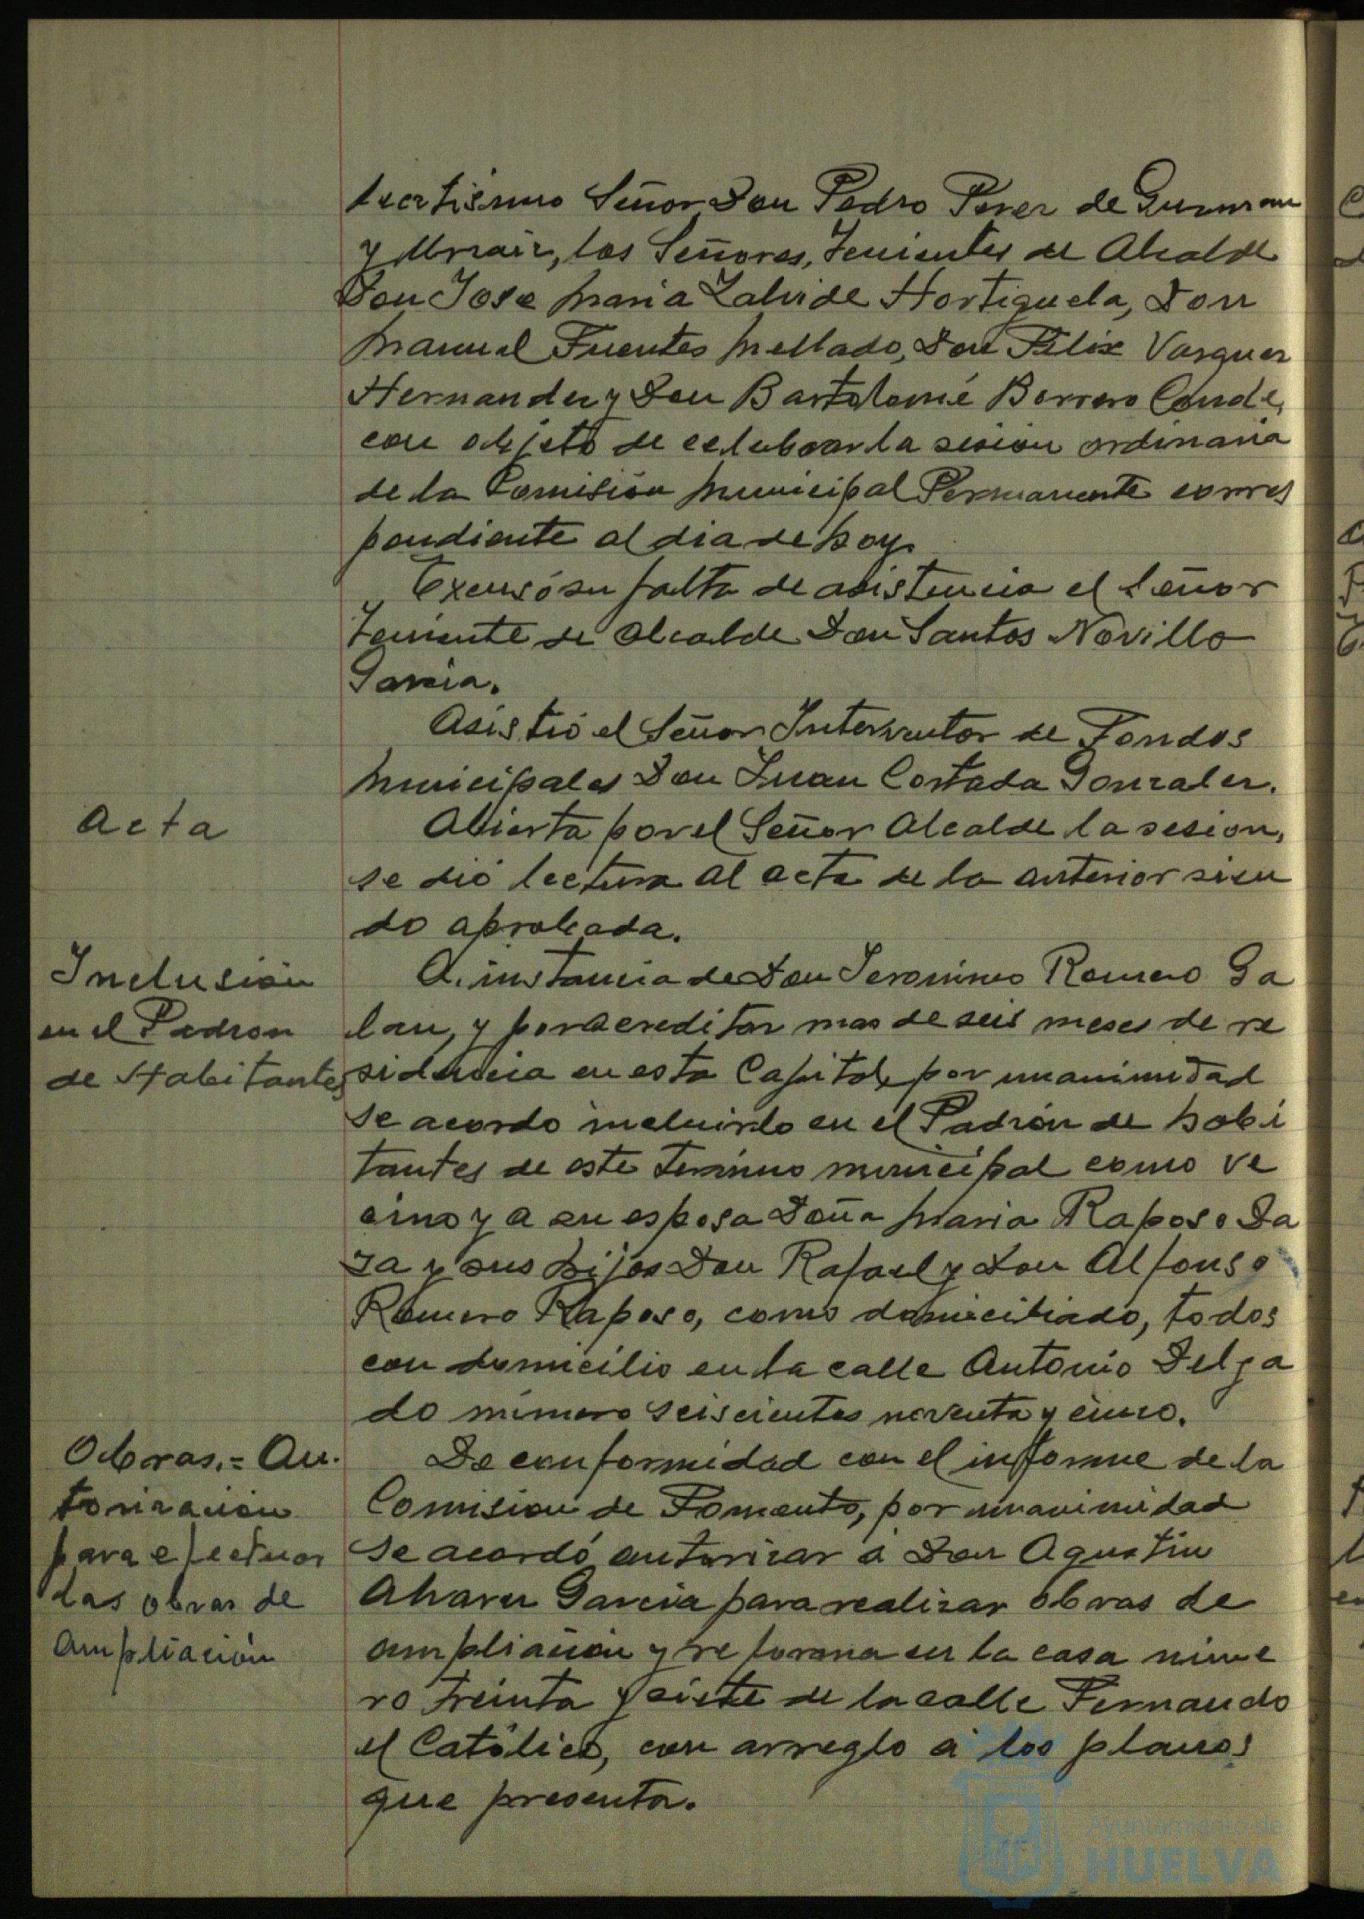 Señor Don Pedro Perez de Guzman
y Urzaiz, los Señores, Tenientes de Alcalde
Don Jose Maria Zalvide Hortiguela, Don
Manuel Fuentes Mellado, Don Félix Vazquez
Hernandez y Don Bartolomé Borrero Conde,
con objeto de celebrar la sesion ordinaria
de la Comisión Municipal Permanente corres
pondiente al dia de hoy.
Excusó su falta de asistencia el Señor
Teniente de Alcalde Don Santos Novillo
Garcia.
Asistió el Señor Interventor de Fondos
Municipales Don Juan Cortada Gonzalez.
Acta
Abierta por el Señor Alcalde la sesion,
se dió lectura al acta de la anterior sien
do aprobada.
Inclusión
en el Padron
de Habitantes
A instancia de Don Jeronimo Romero Ga
lan, y por acreditar mas de seis meses de re
sidencia en esta Capital, por unanimidad
se acordo incluirlo en el Padrón de habi
tantes de este termino municipal como ve
cino y a su esposa Doña Maria Raposo Da
za y sus hijos Don Rafael y Don Alfonso
Romero Raposo, como domiciliado, todos
con domicilio en la calle Antonio Delga
do número seiscientos noventa y cinco.
Obras.= Au.
torizacion
para efectuar
las obras de
ampliación
De conformidad con el informe de la
Comision de Fomento, por unanimidad
se acordó autorizar á Don Agustin
Alvarez Garcia para realizar obras de
ampliación y reforma en la casa nume
ro treinta y siete de la calle Fernando
el Católico, con arreglo á los planos
que presenta.
Ayuntamiento de
HUELVA